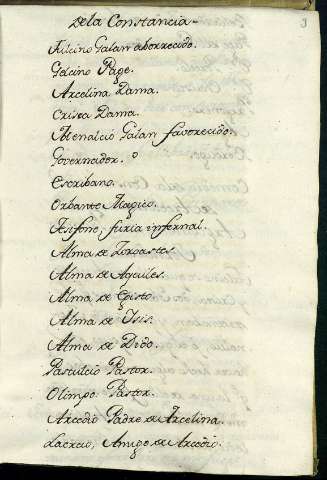 3
Dela Constancia
Filcino Galan aborrecido.
Gelcino Page.
Arcelina Dama.
Crisea Dama.
Menalcio Galan favorecido.
Governador.
Escribano.
Orbante Magico.
Tesifone, furia infernal.
Alma de Zoroastes.
Alma de Aquiles.
Alma de Egisto
Alma de Isis.
Alma de Dido.
Pastor.
Olimpo Pastor.
Arcedio Padre de Arcelina.
Amigo de Arcedio.